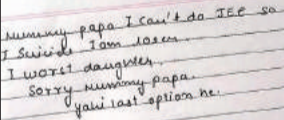 Mummy papa I can't do JEE so
I suicide I am loser
I worst daughter.
Sorry mummy papa.
yahi last option he.